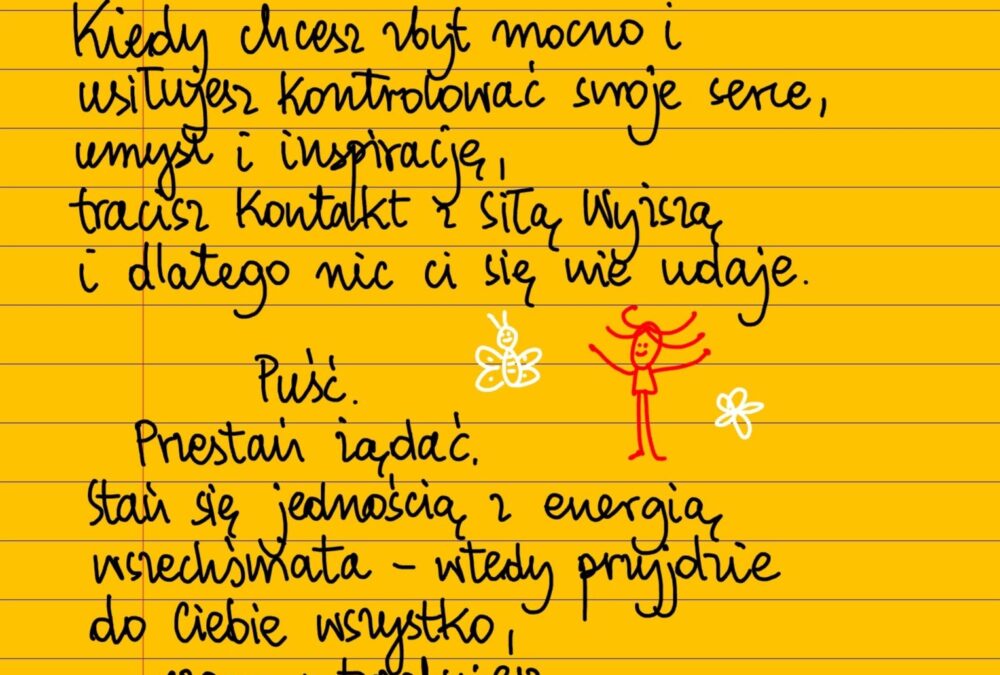 Kiedy chcesz zbyt mocno i
usiłujesz kontrolować swoje serce,
umysł i inspirację,
tracisz kontakt z Siłą Wyższą
i dlatego nic ci się nie udaje.
Puść.
Przestań żądać.
Stań się jednością z energią
wszechświata – wtedy przyjdzie
do Ciebie wszystko,